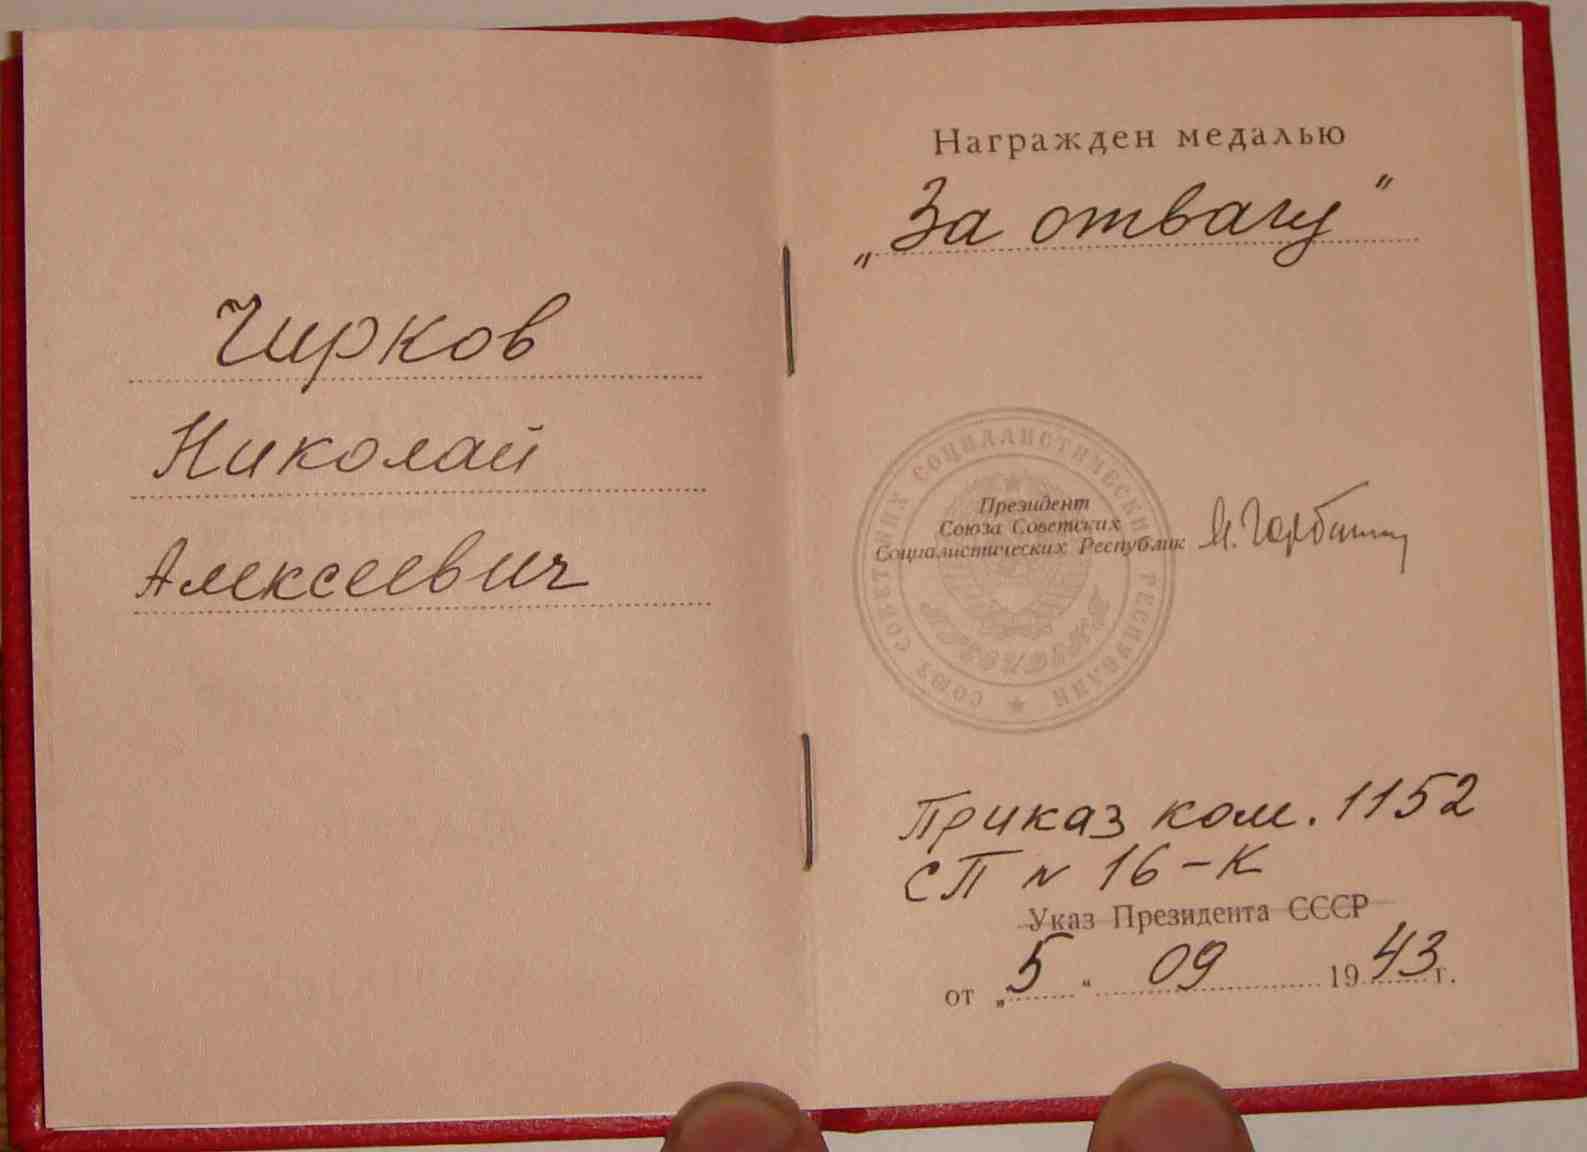 Чирков
Николай
Алексеевич
Награжден медалью
„За отвагу"
СОЮЗ СОВЕТСКИХ СОЦИАЛИСТИЧЕСКИХ РЕСПУБЛИК
Президент
Союза Советских
Социалистических Республик
М. Горбачев
Приказ ком. 1152
СП N 16-К
Указ Президента СССР
от „5" 09 1943 г.